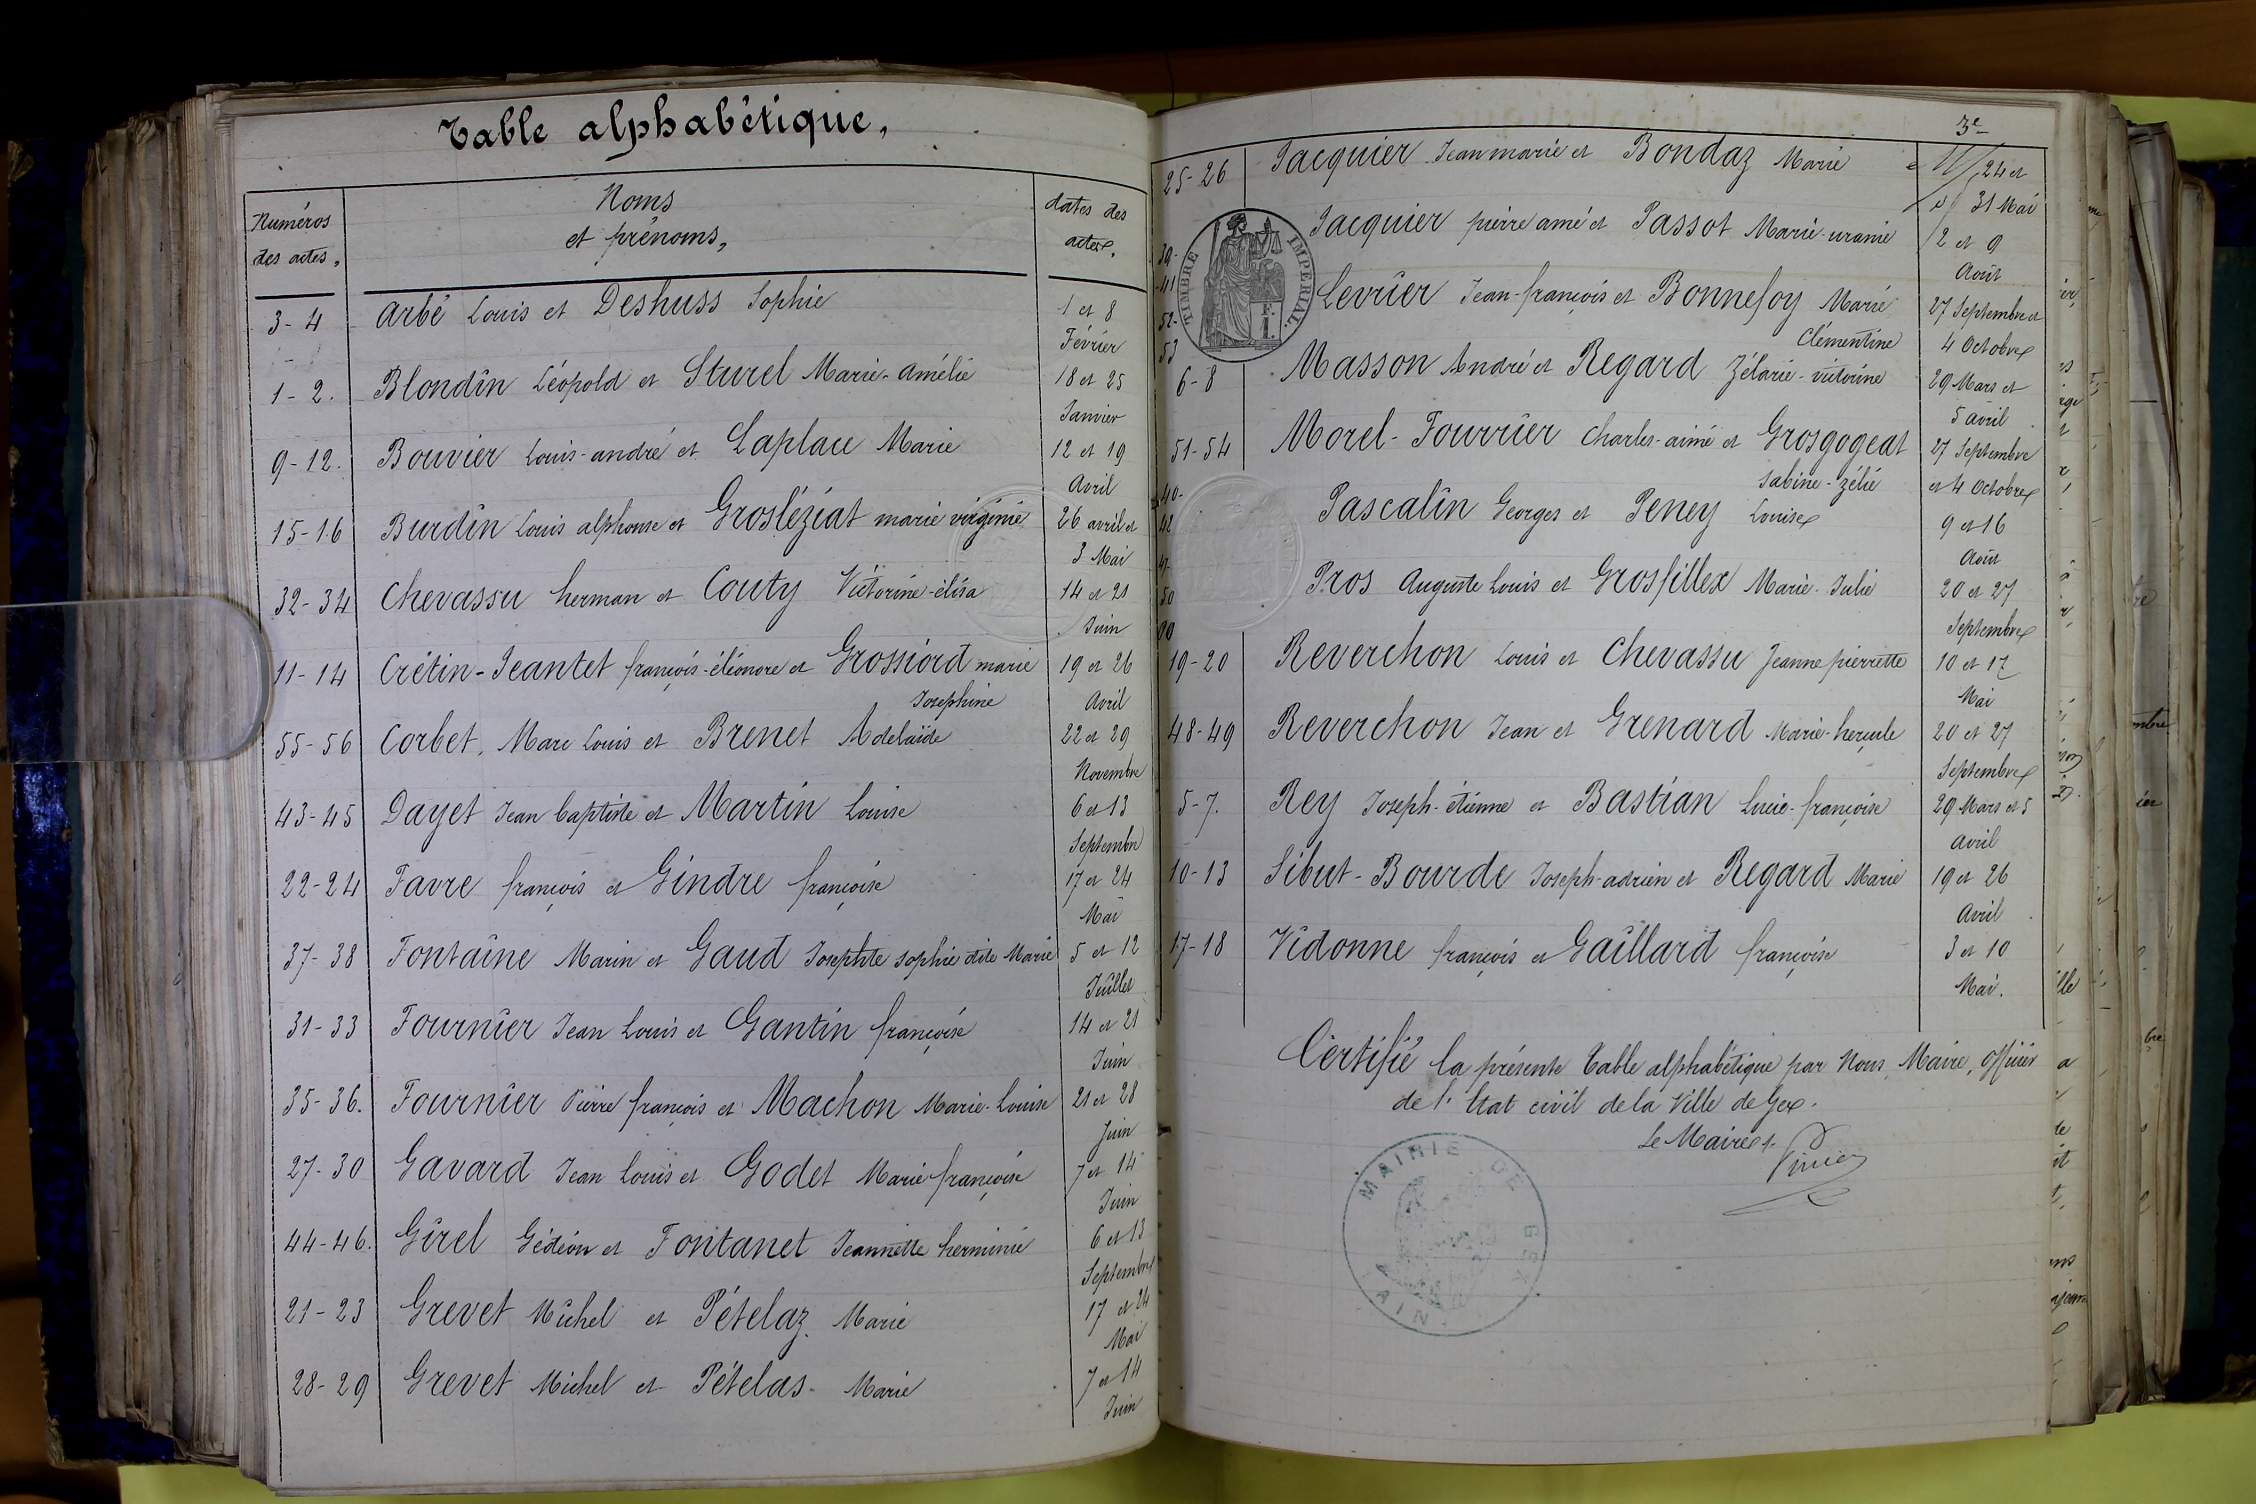 Table alphabétique,
Numéros
des actes,
Noms
et prénoms,
dates des
actes,
3-4 Arbé Louis et Deshuss Sophie 1 et 8
Février
1-2. Blondin Léopold et Sturel Marie-Amélie 18 et 25
Janvier
9-12. Bouvier Louis-andré et Laplace Marie 12 et 19
Avril
15-16 Burdin Louis alphonse et Grosléziat marie virginie 26 avril et
3 Mai
32-34 Chevassu herman et Couty Victorine-élisa 14 et 21
Juin
11-14 Crétin-Jeantet françois-éléonore et Grossiord marie 19 et 26
Josephine Avril
55-56 Corbet, Marc Louis et Brenet Adelaïde 22 et 29
Novembre
43-45 Dayet Jean baptiste et Martin Louise 6 et 13
Septembre
22-24 Favre françois et Gindre françoise 17 et 24
Mai
37-38 Fontaine Marin et Gaud Josephte sophie dite Marie 5 et 12
Juillet
31-33 Fournier Jean Louis et Gantin françoise 14 et 21
Juin
35-36. Fournier Pierre françois et Machon Marie-Louise 21 et 28
Juin
27-30 Gavard Jean Louis et Godet Marie françoise 7 et 14
Juin
44-46. Girel Gédéon et Fontanet Jeannette herminie 6 et 13
Septembre
21-23 Grevet Michel et Pételaz Marie 17 et 24
Mai
28-29 Grevet Michel et Pételas Marie 7 et 14
Juin
3e
25-26 Jacquier Jean marie et Bondaz Marie 24 et
31 Mai
39-
41 Jacquier pierre amé et Passot Marie-uranie 2 et 9
Août
TIMBRE IMPERIAL.
52-
53 Levrier Jean-françois et Bonnefoy Marie 27 Septembre et
Clémentine 4 Octobre
6-8 Masson André et Regard Zélarie-victorine 29 Mars et
5 avril
51-54 Morel-Fourrier Charles-aimé et Grosgogeat 27 Septembre
Sabine-Zélie et 4 Octobre
40-
42 Pascalin Georges et Peney Louise 9 et 16
Août
47-
50 Pros Auguste Louis et Grosfillex Marie-Julie 20 et 27
Septembre
19-20 Reverchon Louis et Chevassu Jeanne pierrette 10 et 17
Mai
48-49 Reverchon Jean et Grenard Marie-hercule 20 et 27
Septembre
5-7. Rey Joseph-étienne et Bastian Lucie-françoise 29 Mars et 5
Avril
10-13 Sibut-Bourde Joseph-adrien et Regard Marie 19 et 26
Avril
17-18 Vidonne françois et Gaillard françoise 3 et 10
Mai.
Certifié la présente table alphabétique par Nous, Maire, officier
de l'Etat civil de la Ville de Gex.
Le Maire
MAIRIE DE GEX
AIN